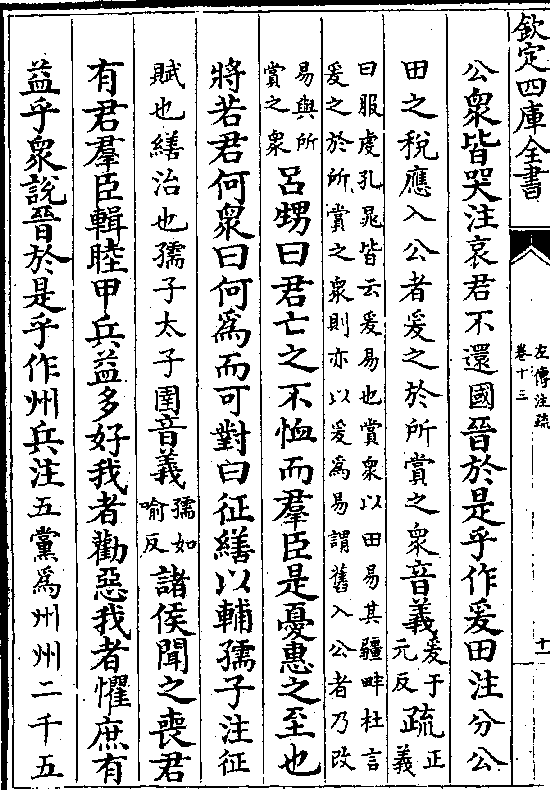 欽定四庫全書
左傳注疏
卷十三
十一
公衆皆哭注哀君不還國晉於是乎作爰田注分公
田之稅應入公者爰之於所賞之衆音義爰于
元反疏正
義
曰服虔孔晁皆云爰易也賞衆以田易其疆畔杜言
爰之於所賞之衆則亦以爰爲易謂舊入公者乃改
易與所
賞之衆呂甥曰君亡之不恤而羣臣是憂惠之至也
將若君何衆曰何爲而可對曰征繕以輔孺子注征
賦也繕治也孺子太子圉音義孺如
喻反諸侯聞之喪君
有君羣臣輯睦甲兵益多好我者勸惡我者懼庶有
益乎衆說晉於是乎作州兵注五黨爲州州二千五